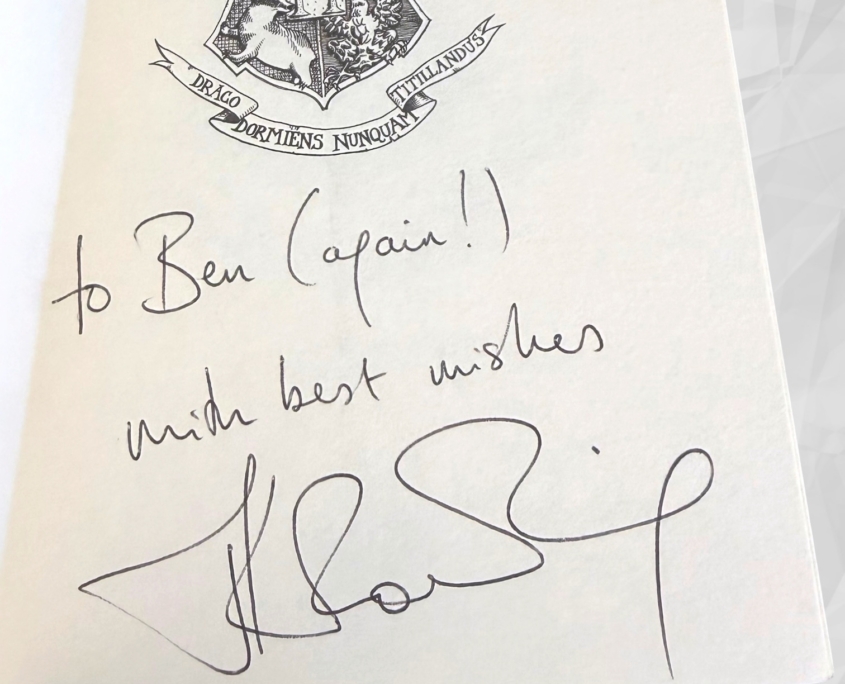 DRACO
DORMIENS NUNQUAM
TITILLANDUS
to Ben (again!)
with best wishes
JK Rowling